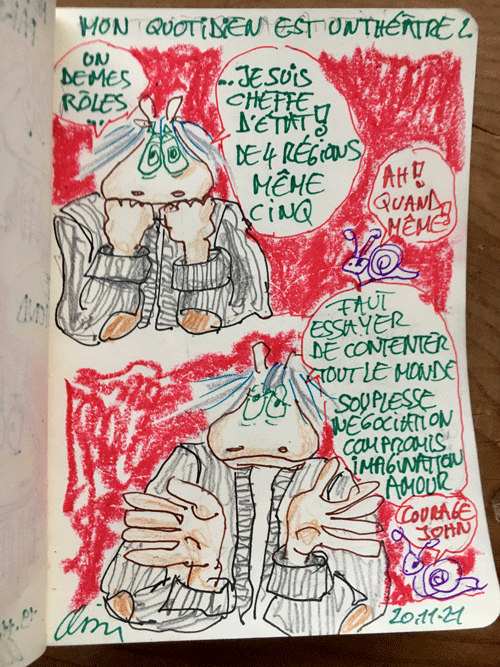 MON QUOTIDIEN EST UN THÉÂTRE 2
UN
DE MES
RÔLES
...
... JE SUIS
CHEFFE
D'ÉTAT!
DE 4 RÉGIONS
MÊME
CINQ
AH!
QUAND
MÊME!
FAUT
ESSAYER
DE CONTENTER
TOUT LE MONDE
SOUPLESSE
NÉGOCIATION
COMPROMIS
IMAGINATION
AMOUR
COURAGE
JOHN
20.11.21